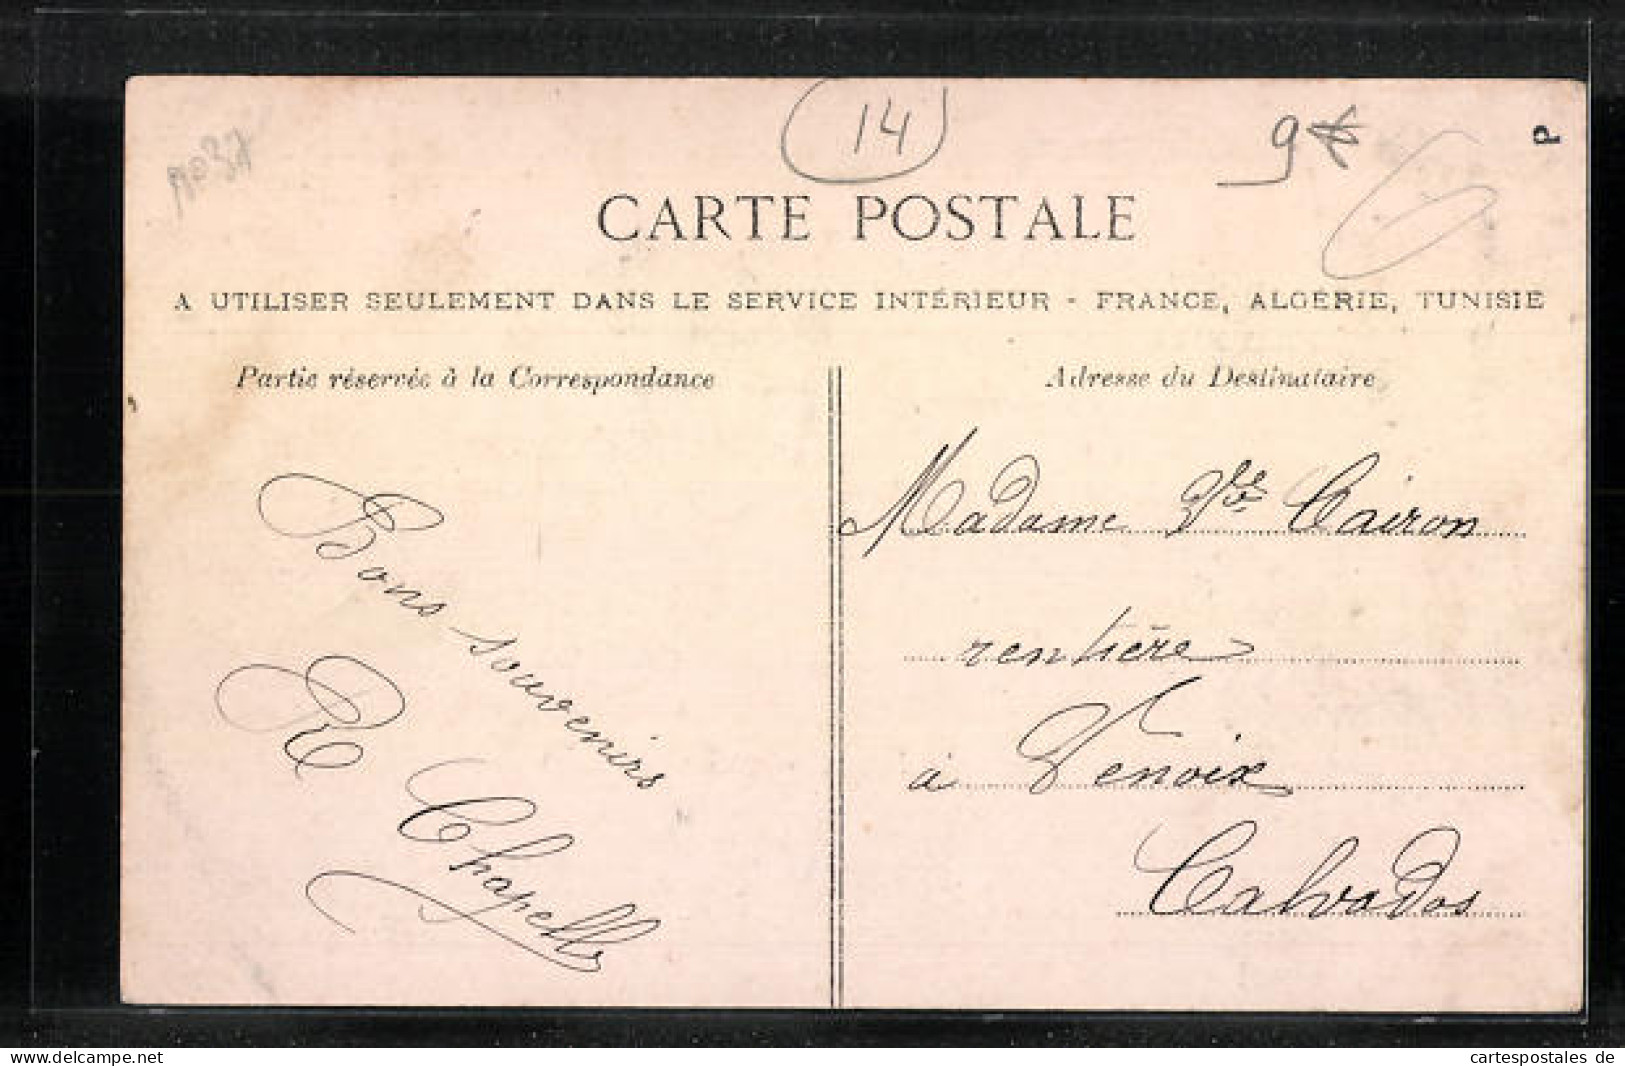 14
9€
P
CARTE POSTALE
A UTILISER SEULEMENT DANS LE SERVICE INTÉRIEUR - FRANCE, ALGÉRIE, TUNISIE
Partie réservée à la Correspondance
Bons souvenirs
R Chapelle
Adresse du Destinataire
Madame Vve Cairon
rentière
à Venoix
Calvados
delcampe.net
cartespostales de